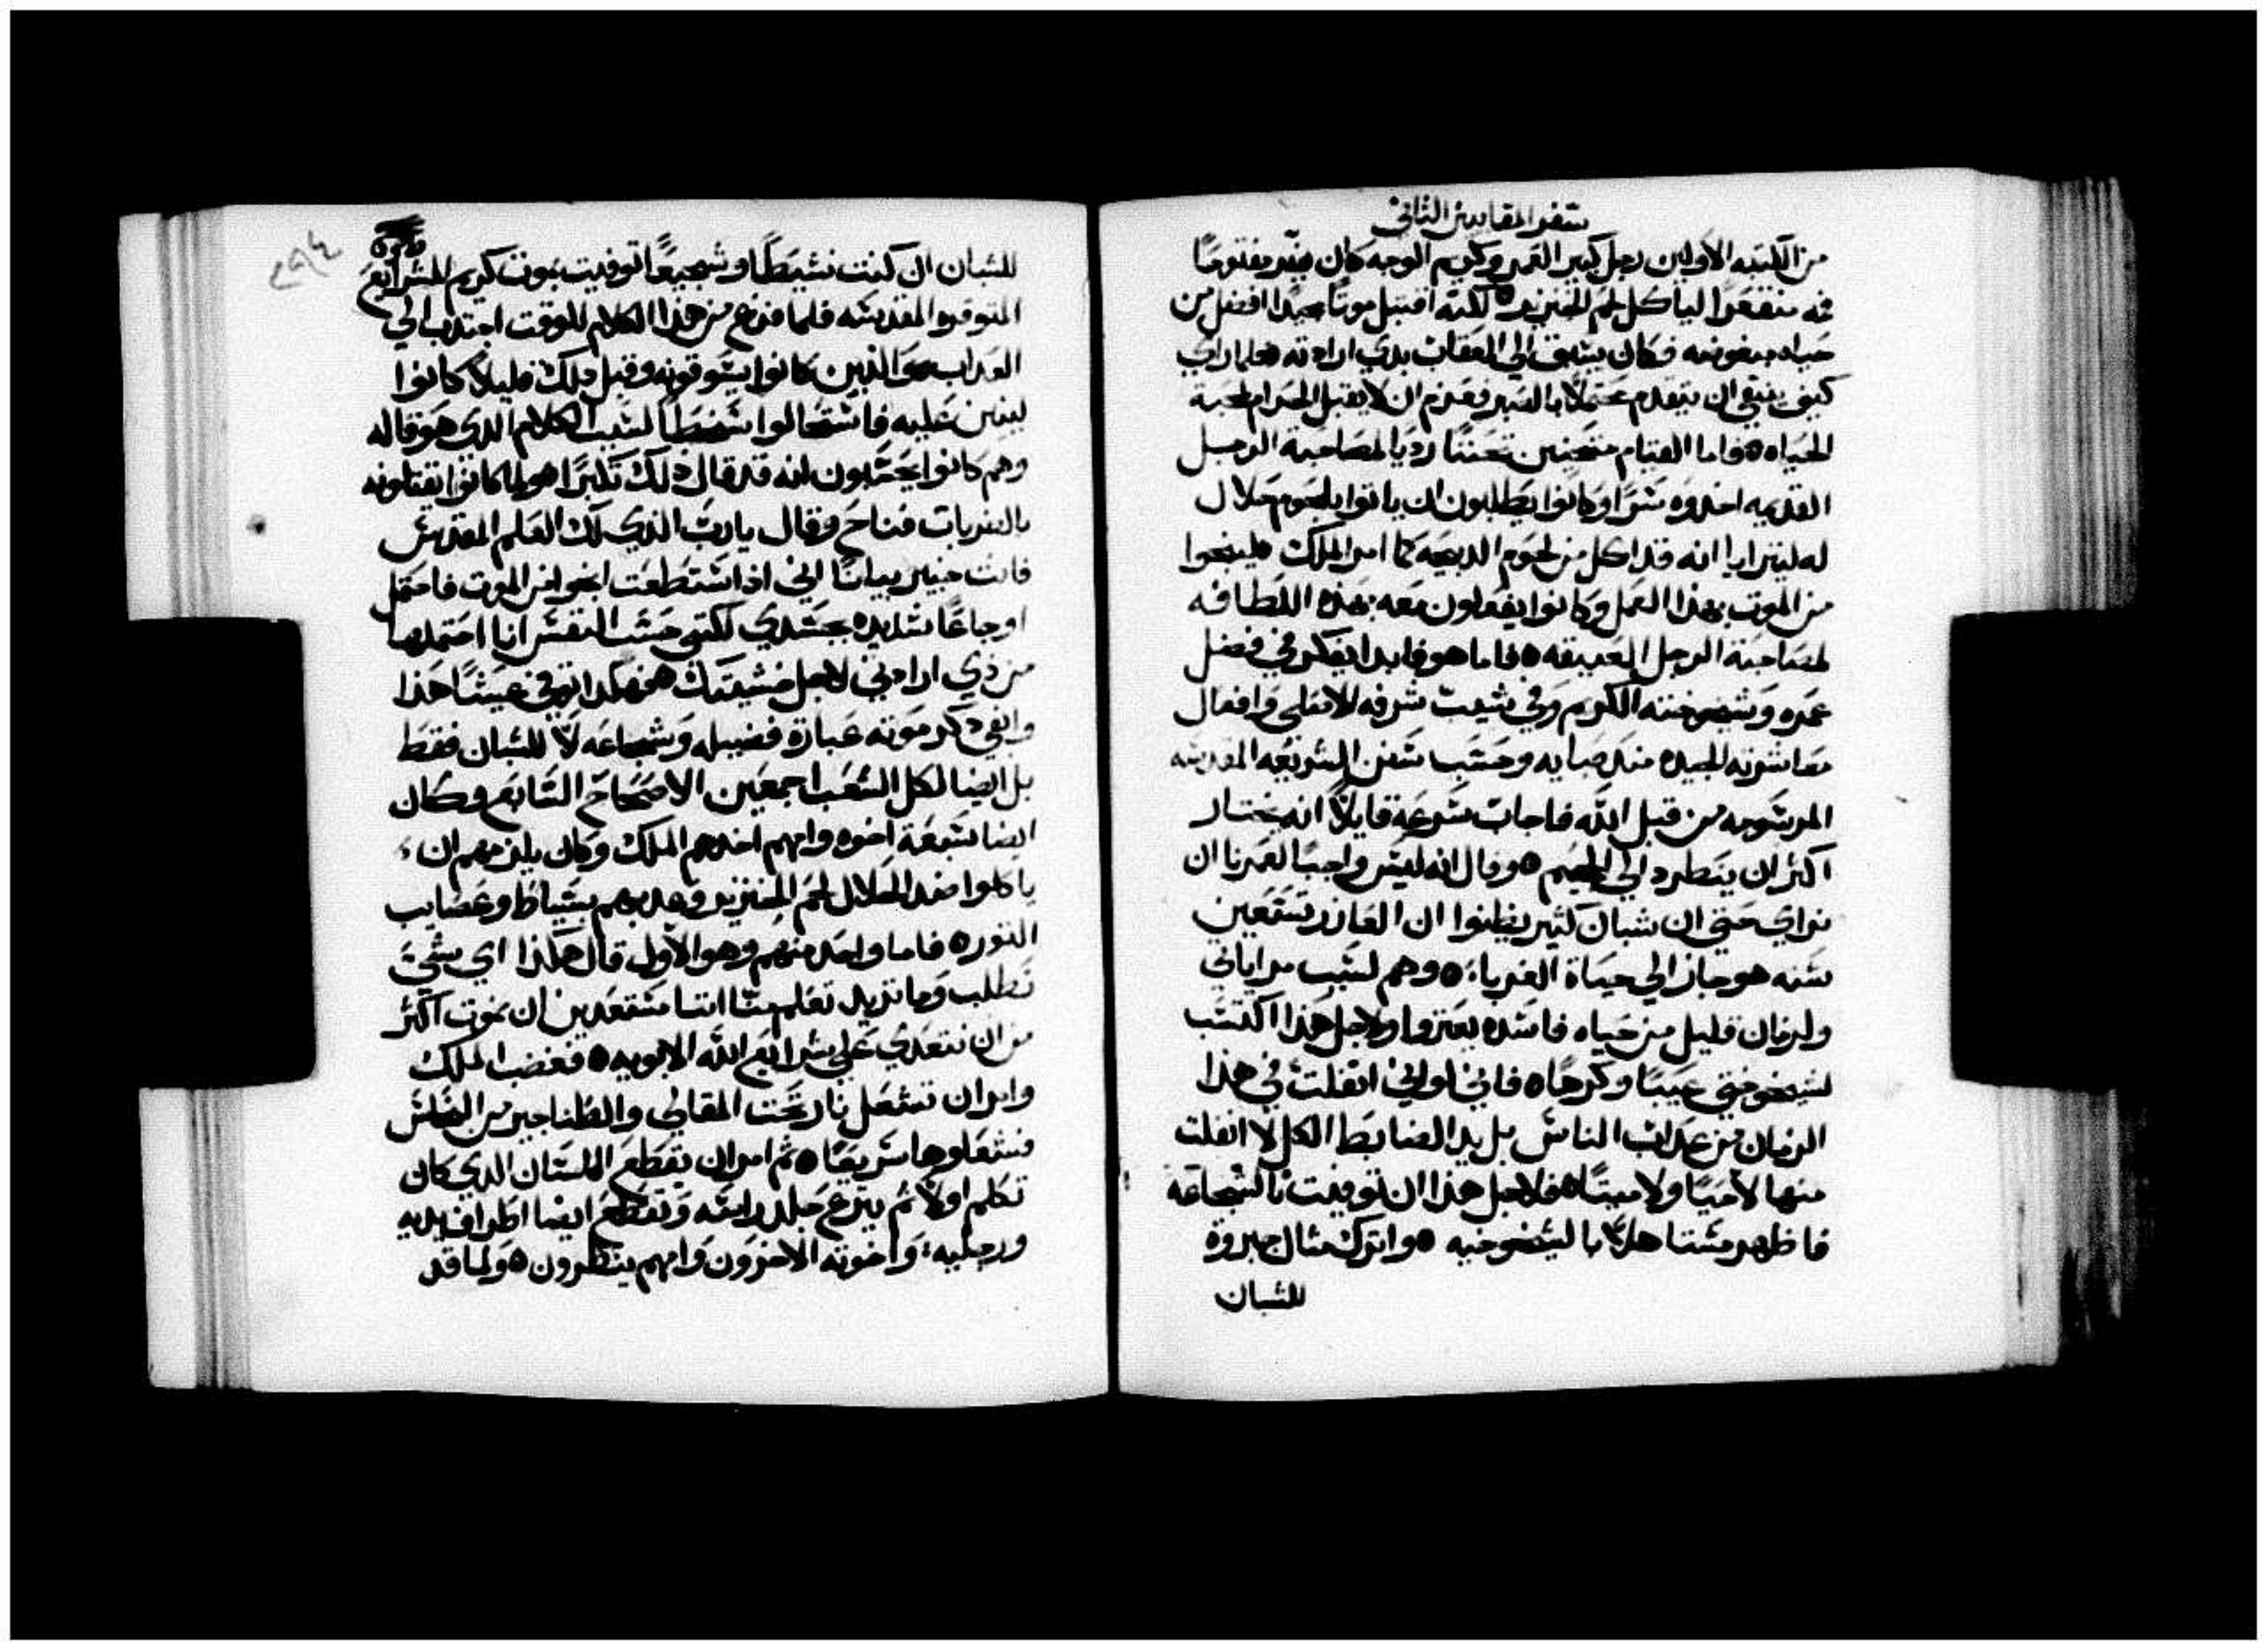 سفر المقابيين الثاني
من الكتبه الاولين رجل كبير العمر وكريم الوجه كان بفم مفتوحًا
فمه منقعرًا لياكل لحم الخنزير ه لكنه اقتبل موتًا مجيدًا افضل من
حياه مبغوضه فكان يسبق الي العقاب بذي ارادته فلما راي
كيف ينبغي ان يتقدم محتملًا بالصبر فعزم ان لا يقبل الحرام لمحبة
الحياه ه فاما القيام متحننين تحننًا رديا لمصاحبة الرجل
القديمه اخدوه سرًا وكانوا يطلبون ان ياتوا بلحوم حلال
له ليترايا انه قد اكل من لحوم الدبيحه كما امر الملك فلينجوا
من الموت بهذا العمل وكانوا يفعلون معه بهذه اللطافه
لمصاحبة الرجل العتيقه ه فاما هو فابدا يفكر في فضل
عمره وشيخوخته الكريم وفي شيبت شرفه الاصلي وافعال
معاشرته الجيده مند صبايه وحسب سنن الشريعه المقدسه
المرسومه من قبل الله فاجاب سرعة قايلًا انه يختار
اكثر ان ينطرد الي الجحيم ه وقال انه ليس واجبًا لعمرنا ان
نراي حتي ان شبان كثير يظنوا ان العازر تسعين
سنه هو جاز الي حياة الغرباء ه وهم لسبب مراياتي
ولزمان قليل من حياه فاسده يغتروا ولاجل هذا اكتسب
لشيخوختي عيبًا وكرهًا ه فاني اولني انفلت في هذا
الزمان من عداب الناس بل يد الضابط الكل لا انفلت
منها لا حيًا ولا ميتًا ه فلاجل هذا ان توفيت بالشجاعه
فاظهر مستاهلًا بالشيخوخيه ه واترك مثال جبروة
للشبان
للشبان ان كنت نشيطًا وشجيعًا توفيت بموت كريم للشرايع
الموقره المقدسه فلما فرغ من هذا الكلام للوقت اجتدب الي
العداب ه والذين كانوا يسوقونه وقبل ذلك قليلًا كانوا
لينين عليه فاستحالوا سخطًا لسبب الكلام الدي هو قاله
وهم كانوا يحسبون انه قد قال ذلك تكبرًا ه ولما كانوا يقتلونه
بالضربات فناح وقال يارب الذي لك العلم المقدس
فانت خبير بيانًا اني اذا استطعت انجوا من الموت فاحتمل
اوجاعًا شديده بجسدي لكني حسب النفس انا احتملها
من ذي ارادتي لاجل خشيتك ه فهكدا انهي عيشًا هذا
وابقي ذكر موته عبارة فضيله وشجاعه لا للشبان فقط
بل ايضا لكل الشعب اجمعين الاصحاح السابع وكان
ايضا سبعة اخوه وامهم اخدهم الملك وكان يلزمهم ان
ياكلوا ضد الحلال لحم الخنزير وعدبهم بسياط وعصايب
التور ه فاما واحد منهم وهو الاول قال هكذا اي شي
تطلب وما تريد تعلم منا اننا مستعدين ان نموت اكثر
من ان نتعدي علي شرايع الله الابويه ه فغضب الملك
وامر ان تشعل نار تحت المقالي والطناجير من النحاس
فشعلوها سريعًا ه ثم امر ان يقطع اللسان الدي كان
تكلم اولًا ثم ينزع جلد راسه وتقطع ايضا اطراف يديه
ورجليه واخوته الاخرون وامهم ينظرون ه ولما قد